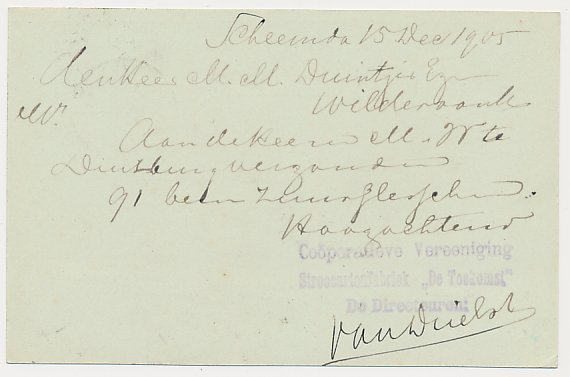 Scheemda 15 Dec 1905
Den Heer M. M. Duintjer Ezn
Wildervank
M.
Aan de Heeren M. W te
Duisburg verzonden
91 been zuurflesschen.
Hoogachtend
Coöperatieve Vereeniging
Stroocartonfabriek „De Toekomst"
De Directeuren